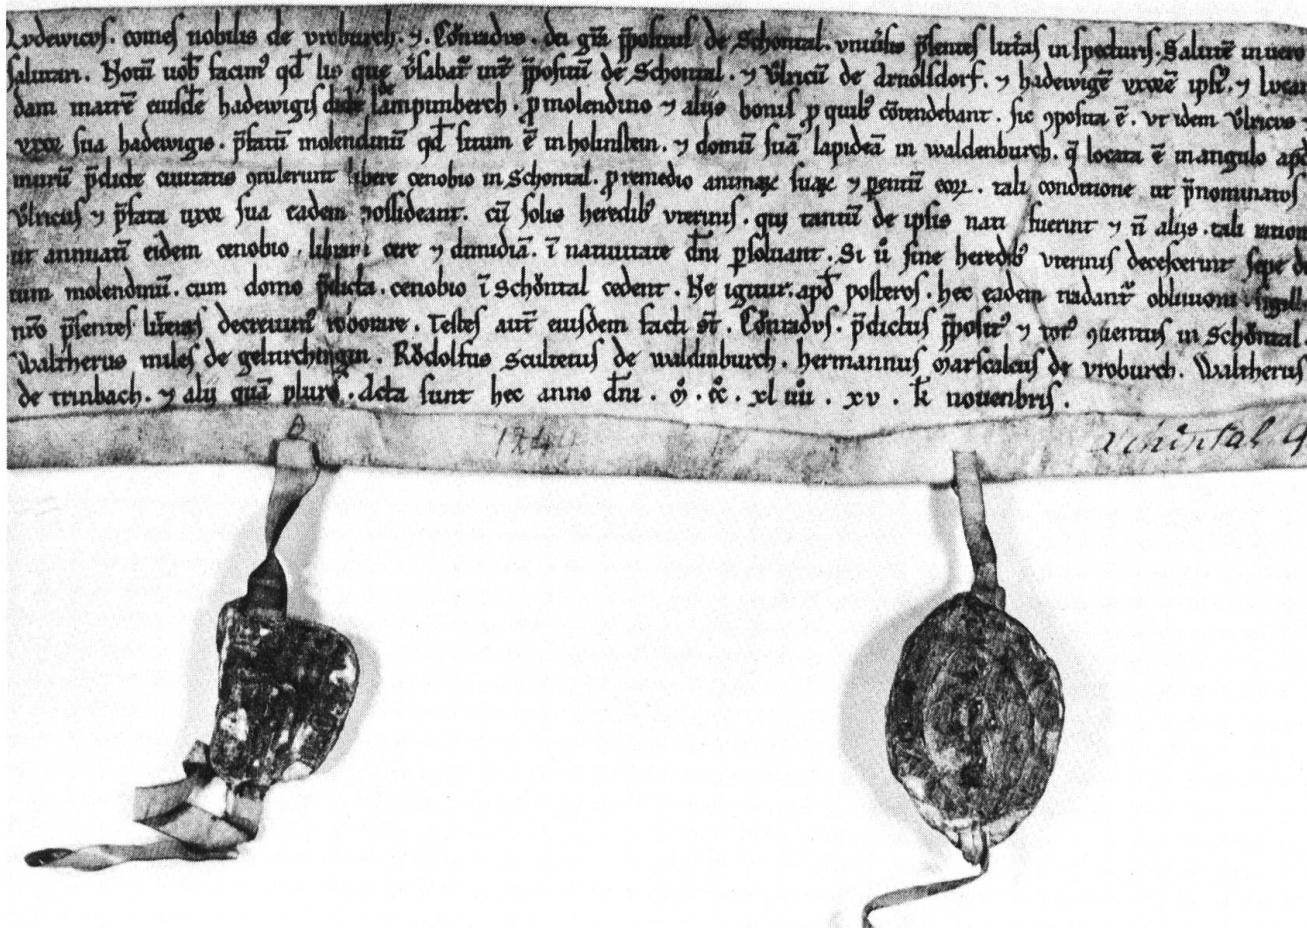 Lvdewicvs. comes nobilis de vroburch. ⁊. Cv̊nradvs. dei gr̃a p̃positus de Schontal. vniu̾sis p̃sentes litt̃as inspecturis. Salutē in uero
salutari. Notū uob̃ facim᾿ qd̃ lis que u̾sabat᷑ int̃ p̃positū de Schontal. ⁊ Vl̊ricū de Arnolsdorf. ⁊ hadewigē vxorē ipsi᾿. ⁊ Lucar
dam matrē eiusdē hadewigis dictā de lampinberch. ꝓ molendino ⁊ alijs bonis ꝓ quib᾿ cōtendebant. sic ꝯposita ē. vt idem Vl̊ricus ⁊
vxor sua hadewigis. p̃fatū molendinū qd̃ situm ē in holinstein. ⁊ domū suā lapideā in waldenburch. q̃ locata ē in angulo apd̃
murū p̃dicte ciuitatis ꝯtulerunt libere cenobio in Schontal. ꝓ remedio animaꝝ suaꝝ ⁊ parentū eoꝝ. tali conditione ut p̃nominatus
Vl̊ricus ⁊ p̃fata uxor sua eadem possideant. cū solis heredib᾿ vterinis. qui tantū de ipsis nati fuerint ⁊ n̄ alijs. tali
ut annuatī eidem cenobio. libram cere ⁊ dimidiā. ī natiuitate dñi ꝑsoluant. Si u̾o sine heredib᾿ vterinis decesserint sepe dic
tum molendinū. cum domo p̃dicta. cenobio ī Schöntal cedent. Ne igitur apd̃ posteros. hec eadem tradant᷑ obliuioni sigill
nr̃o p̃sentes litteras decreuim᾿ roborare. Testes aut̄ eiusdem facti st̄. Cv̊nradvs. p̃dictus p̃posit᾿ ⁊ tot᾿ ꝯuentus in Schöntal.
Waltherus miles de gelterchingin. Rv̊dolfus scultetus de waldinburch. hermannus marscalcus de vroburch. Waltherus
de trinbach. ⁊ alij quā plures. Acta sunt hec anno dñi. m̊. c̊c. xl iiii. xv. kl̃ nouenbris.
1244